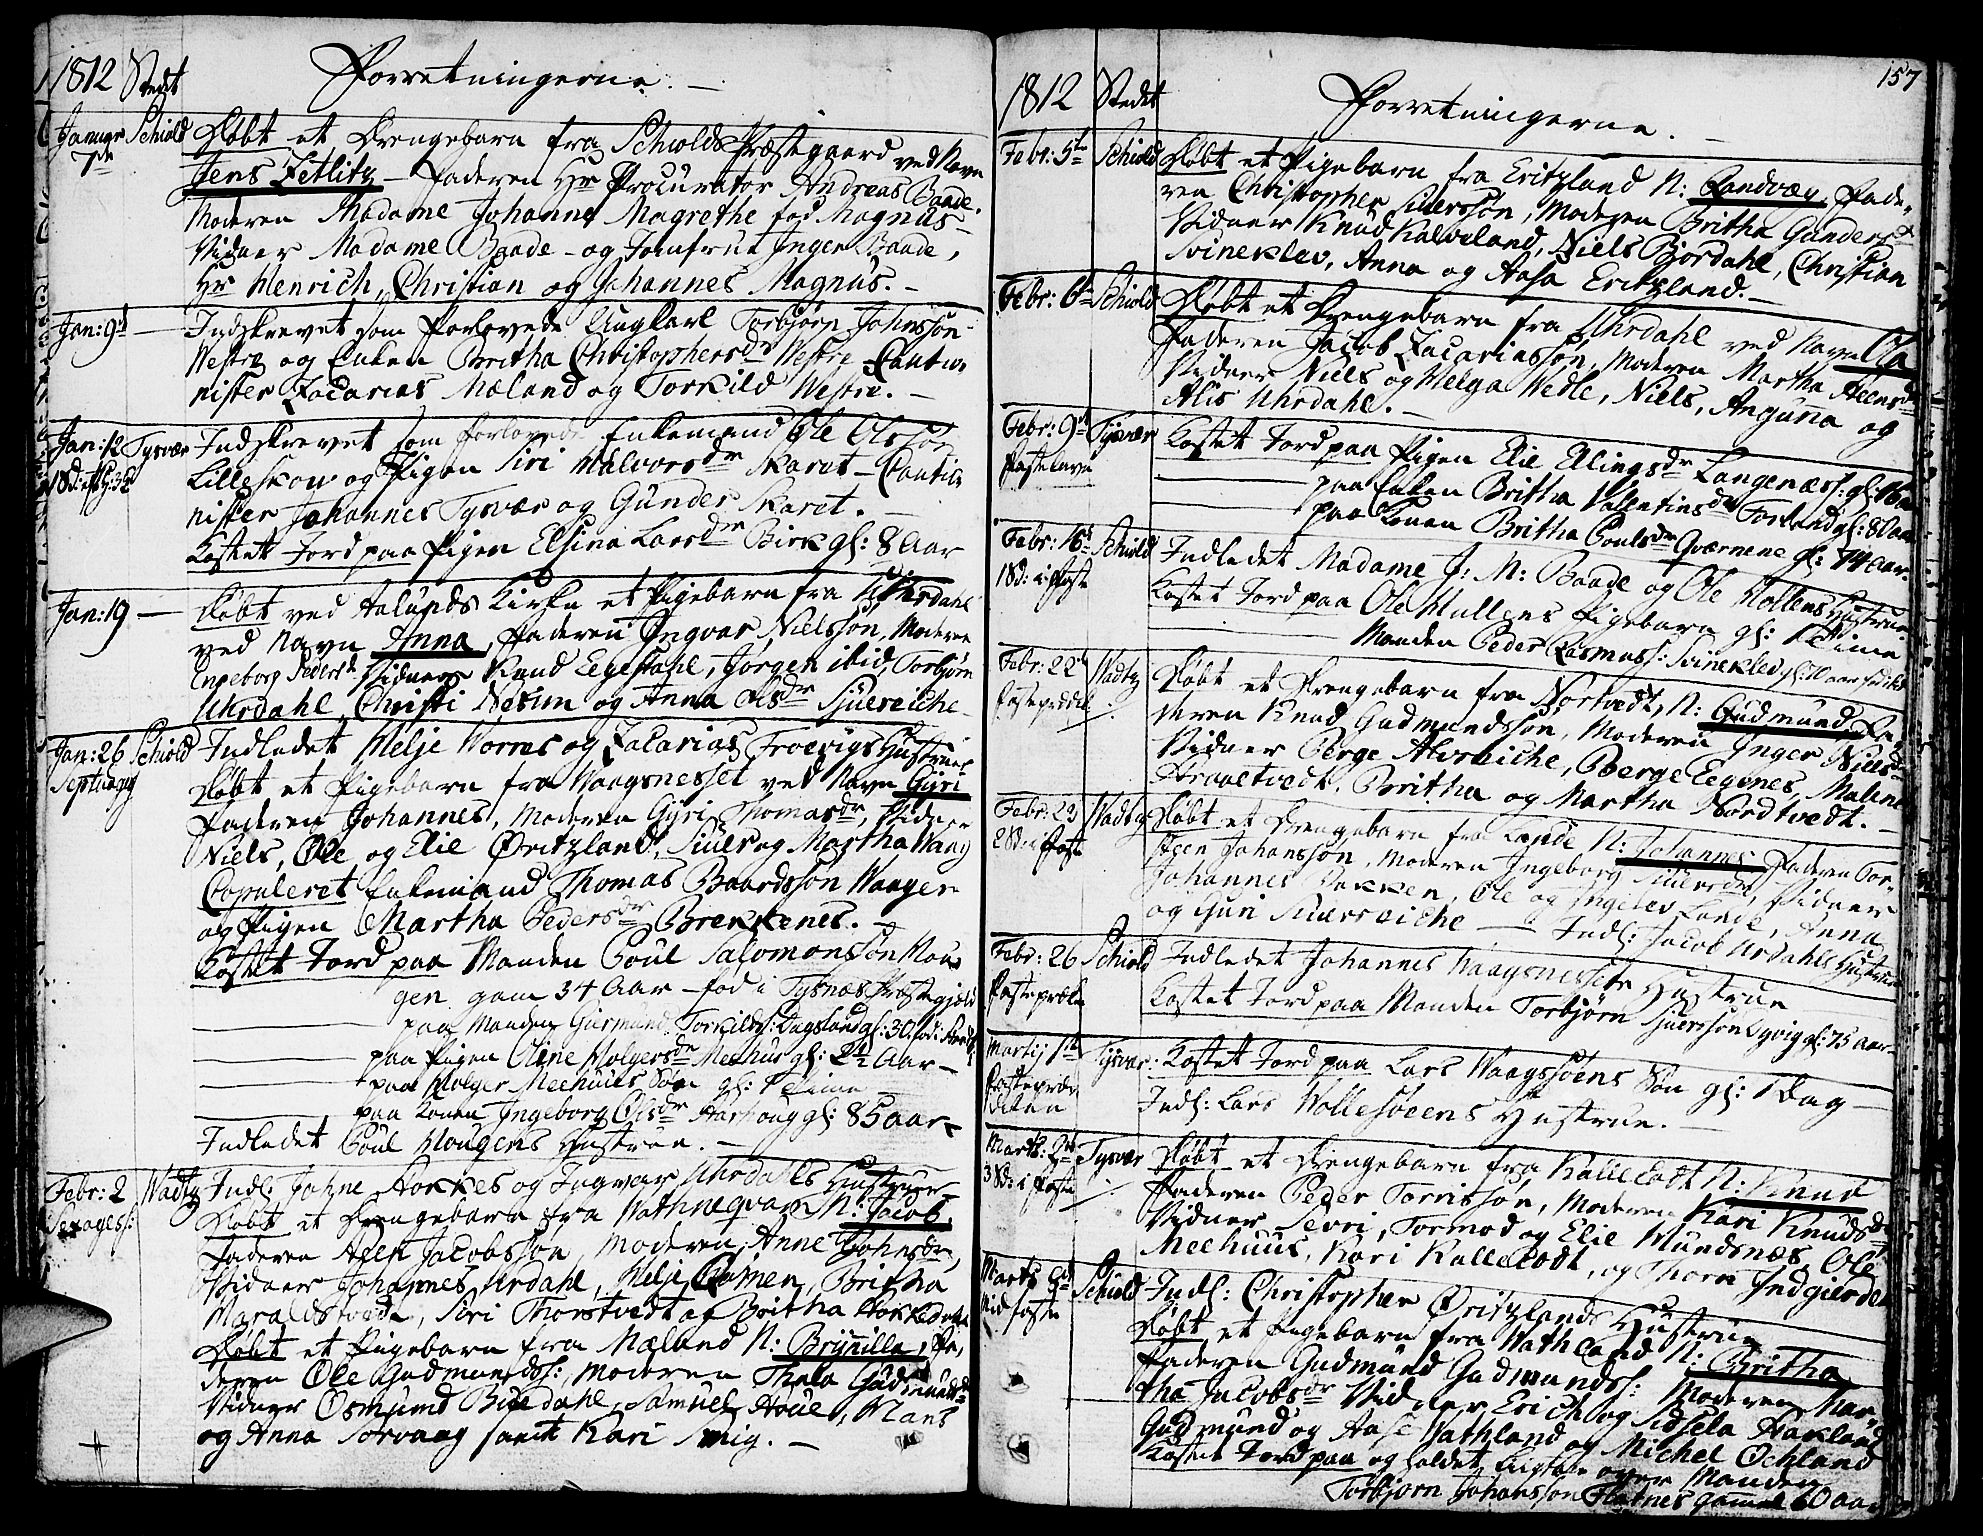 1812 Stedt Forretningerne. —
Januar 1te Schiold Døbt et Drengebarn fra Schiolds Præstegaard ved Navn
Jens Zetlitz — Faderen Hr Procurator Andreas Baade.
Moderen Madame Johanne Magrethe fød Magnus —
Vidner Madame Baade — og Jomfrue Inger Baade,
Hr Henrich, Christian og Johannes Magnus. —
Jan: 9d — Indskrevet som Forlovede Ungkarl Torbjørn Johnssøn
Westre og Enken Britha Christophersdr Westre Cauti-
nister Zacarias Mæland og Torkild Westre. —
Jan: 12 Tysvær Indskrevet som forlovede Enkemand Ole Olssøn
Lilleskow og Pigen Siri Halvorsdr Skaret — Cauti-
nister Johannes Tysvær og Gunder Skaret. —
Kastet Jord paa Pigen Elsina Larsdr Birk gl: 8 Aar
Jan: 19 — Døbt ved Aalunds Kirke et Pigebarn fra Uhrdahl
ved Navn Anna, Faderen Ingvar Nielssøn, Moderen
Engeborg Pedersdr Vidner Knud Eegedahl, Jørgen ibid, Torbjørn
Uhrdahl, Christi Nesum og Anna Olsdr Sjuereiche
Jan: 26 Schiold Indledet Helje Worres og Zacarias Froevigs Hustruer
Septuag Døbt et Pigebarn fra Waagsnesset ved Navn Gyri
Faderen Johannes, Moderen Gyri Thomasdr, Vidner
Niels, Ole og Elie Øritzland, Siuer og Martha Waag
Copuleret Enkemand Thomas Baardssøn Waage
og Pigen Martha Pedersdr Brekkenes. —
Kastet Jord paa Manden Poul Salomonssøn Hou-
gen gam 34 Aar — fød i Tysnæs Præstegjeld
— paa Manden Gurmund Torkilds: Dagsland gl: 30
— paa Pigen Oline Holgersdr Meehus gl: 2½ Aar —
— paa Holger Meehuus Søn gl: 1 Time
— paa Konen Ingeborg Olsdr Aarhoug gl: 85 aar
Indledet Poul Hougens Hustrue. —
Febr: 2 Wadtz Indl: Johne Aarkes og Ingvar Uhrdahls Hustruer
Sexages: Døbt et Drengebarn fra Wathneqvam N: Jacob,
Faderen Aeen Jacobssøn, Moderen Anne Johnsdr,
Vidner Johannes Urdahl, Helje Ramen, Britha
Haraldstvedt, Siri Thorstvedt af Britha
Døbt et Pigebarn fra Mæland N: Brynilla, Fa-
deren Ole Gudmunds:, Moderen Thala Gudmundsdr
Vidner Osmund Buedahl, Samuel Houe, Hans
og Anna Sorvaag samt Kari Smig. —
157
1812 Stedet Forretningerne. —
Febr: 5te Schiold Døbt et Pigebarn fra Eritzland N: Randvæg, Fade-
ren Christopher Siuerssøn, Moderen Britha Gundersdr
Vidner Knud Kalveland, Niels Bjordahl, Christian
Svineklev, Anna og Aasa Eritzland. —
Febr: 6te Schiold Døbt et Drengebarn fra Uhrdahl ved Navn Ola
Faderen Jacob Zacariassøn, Moderen Martha Aeensdr
Vidner Niels og Helga Wedle, Niels, Anguna og
Alis Uhrdahl. —
Febr: 9d Tysvær Kastet Jord paa Pigen Elie Elingsdr Langenæs: gl: 16 aar
Fastelavn — paa Enken Britha Valentinsdr Torland gl: 80 aar
paa Konen Britha Poulsdr Qværnene gl: 74 aar.
Febr: 16d Schiold Indledet Madame J: M: Baade og Ole Mollens Hustrue
1 Sd: i Faste Kastet Jord paa Ole Mullens Pigebarn gl: 1 Time
— Manden Peder Rasmuss: Svineklev
Febr: 22d Wadtz Døbt et Drengebarn fra Nortvedt, N: Gudmund, Fa-
deren Knud Gudmundssøn, Moderen Inger Nielsdr
Vidner Berge Alvseiche, Berge Eegenes, Malene
Straaetvedt, Britha og Martha Nordtvedt. —
Febr: 23 Wadtz Døbt et Drengebarn fra Lande N: Johannes, Faderen Tor-
2 Sd: i Faste sten Johanssøn, Moderen Ingeborg Siuersdr, Vidner
Johannes Bakken, Ole og Ingelev Lande, Anna
og Guri Siuerseiche — Indl: Jacob Urdahls Hustrue
Febr: 26 Schiold Indledet Johannes Waagsnessets Hustrue
Kastet Jord paa Manden Torbjørn Sjuerssøn Dyvig gl: 75 aar —
Martij 1te Tysvær: Kastet Jord paa Lars Waagssøens Søn gl: 1 Dag —
Indl: Lars Wollesøeens Hustrue. —
Marts: Tysvær Døbt et Drengebarn fra Kallelodt N: Knud
3 Sd: i Faste Faderen Peder Torrissøn, Moderen Kari Knudsdr
Vidner Sevri, Tormod og Elie Mundsnæs, Ole
Meehuus, Kari Kallelodt, og Thore Indgierde
Marts Schiold Indl: Christopher Øritzlands Hustrue
Midfaste Døbt et Pigebarn fra Wathland N: Britha
Faderen Gudmund Gudmunds: Moderen Mar-
tha Jacobsdr Vidner Erich og Sidsela Aakland
Gudmund og Aase Wathland og Michel Øchland
Kastet Jord paa og holdet Ligtale over Manden
Torbjørn Johanssøn Flatnes gammel 60 aar